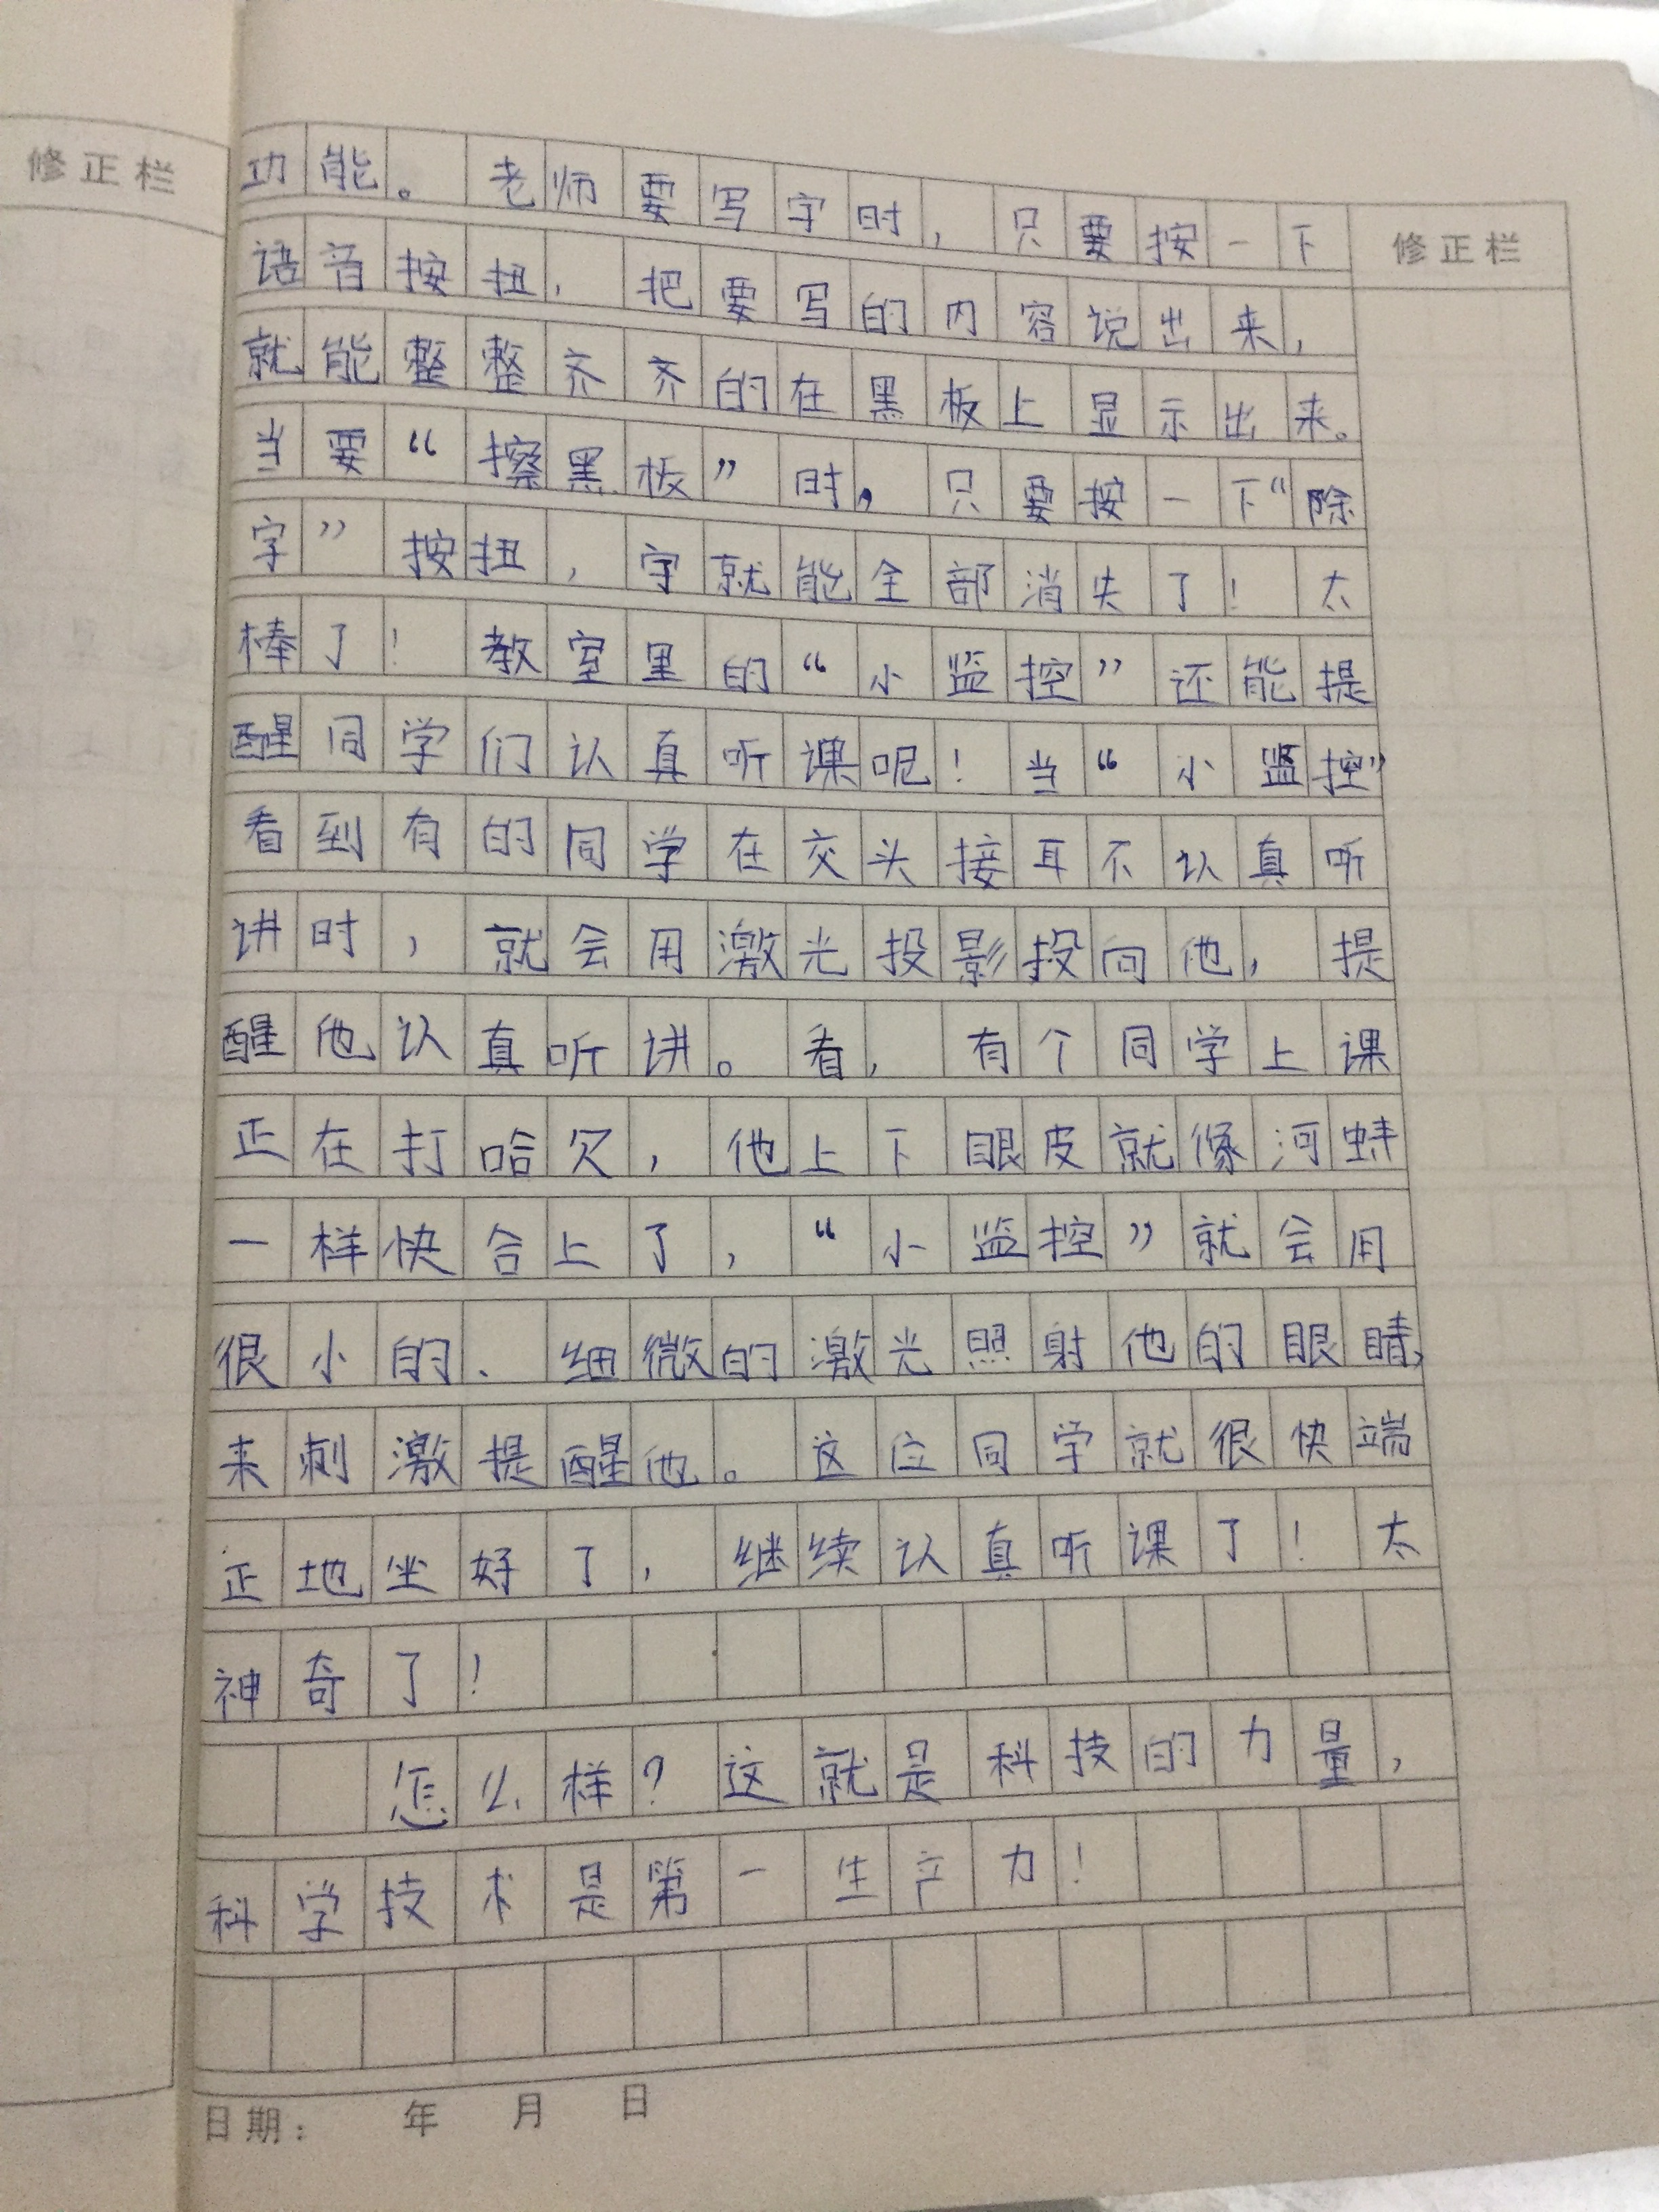 修正栏
功能。老师要写字时，只要按一下
修正栏
语音按扭，把要写的内容说出来，
就能整整齐齐的在黑板上显示出来。
当要“擦黑板”时，只要按一下“除
字”按扭，字就能全部消失了！太
棒了！教室里的“小监控”还能提
醒同学们认真听课呢！当“小监控”
看到有的同学在交头接耳不认真听
讲时，就会用激光投影投向他，提
醒他认真听讲。看，有个同学上课
正在打哈欠，他上下眼皮就像河蚌
一样快合上了，“小监控”就会用
很小的、细微的激光照射他的眼睛，
来刺激提醒他。这位同学就很快端
正地坐好了，继续认真听课了！太
神奇了！
怎么样？这就是科技的力量，
科学技术是第一生产力！
日期： 年 月 日